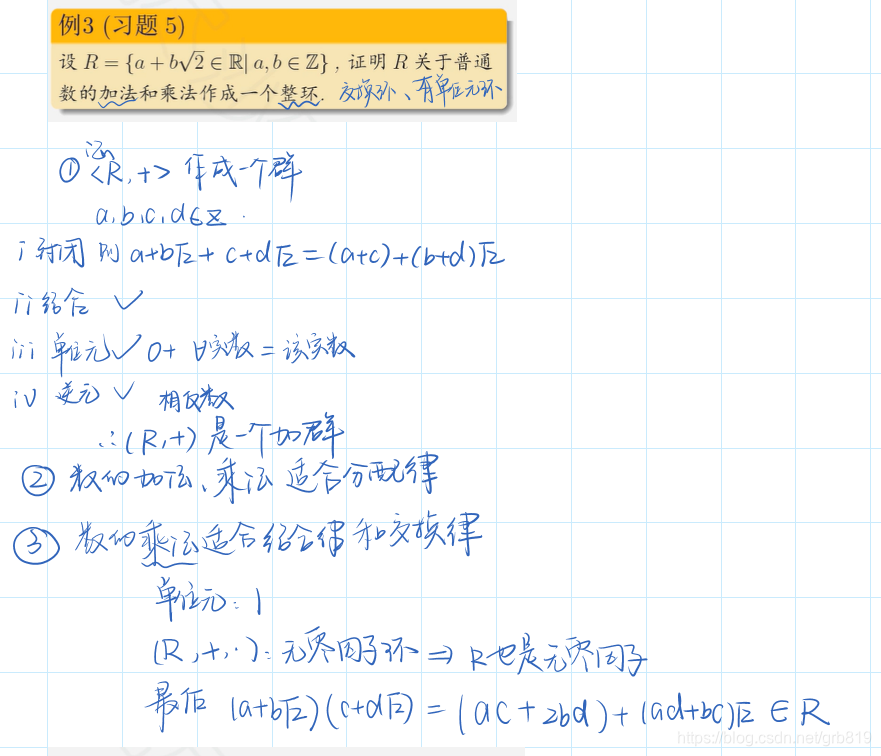 例3 (习题 5)
设 R = {a + b√2 ∈ ℝ| a, b ∈ ℤ}，证明 R 关于普通
数的加法和乘法作成一个整环. 交换环、有单位元环
① <R, +> 作成一个群
a, b, c, d ∈ ℤ.
i 封闭 则 a+b√2 + c+d√2 = (a+c)+(b+d)√2
ii 结合 ✓
iii 单位元 ✓ 0+ ∀实数 = 该实数
iv 逆元 ✓ 相反数
∴ (R, +) 是一个加群
② 数的加法、乘法 适合分配律
③ 数的乘法适合结合律和交换律
单位元: 1
(R, +, ·): 无零因子环 ⇒ R也是无零因子
最后 (a+b√2)(c+d√2) = (ac + 2bd) + (ad+bc)√2 ∈ R
https://blog.csdn.net/grb819